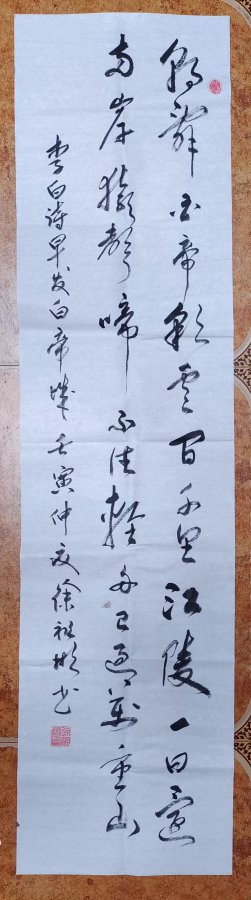 朝辞白帝彩云间千里江陵一日還
两岸猿声啼不住軽舟已過萬重山
李白诗早发白帝城壬寅仲夏徐祖彬书